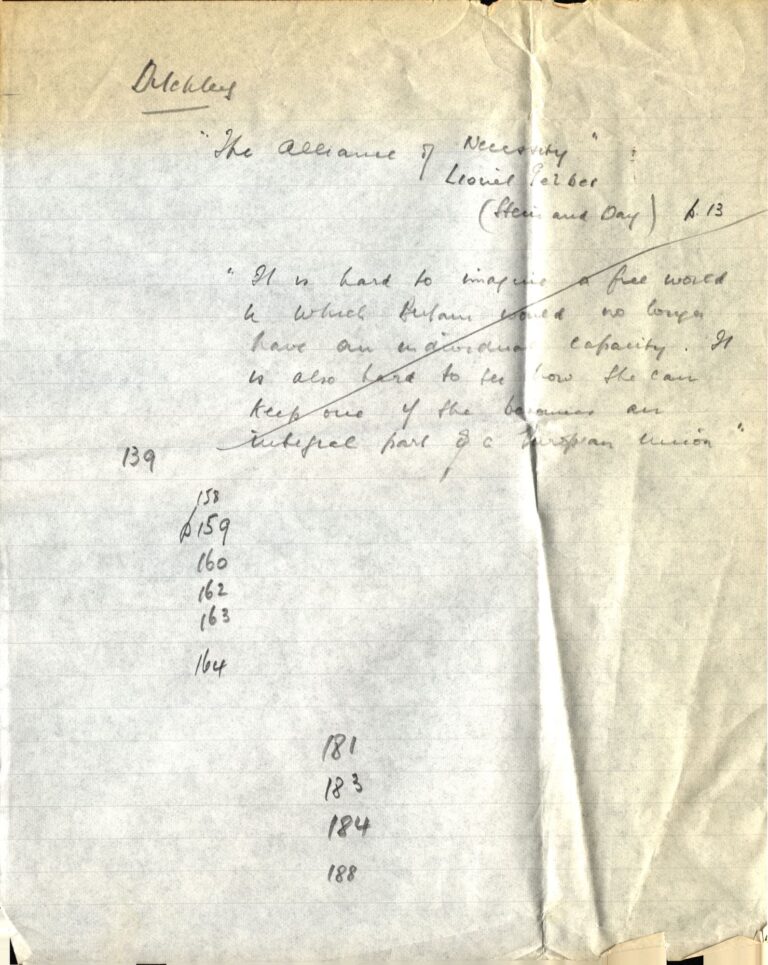 Ditchley
"The Alliance of Necessity"
Lionel Gelber
(Stein and Day) p. 13
"It is hard to imagine a free world
in which Britain would no longer
have an individual capacity. It
is also hard to see how she can
keep one if she becomes an
integral part of a European union"
139
158
p159
160
162
163
164
181
183
184
188